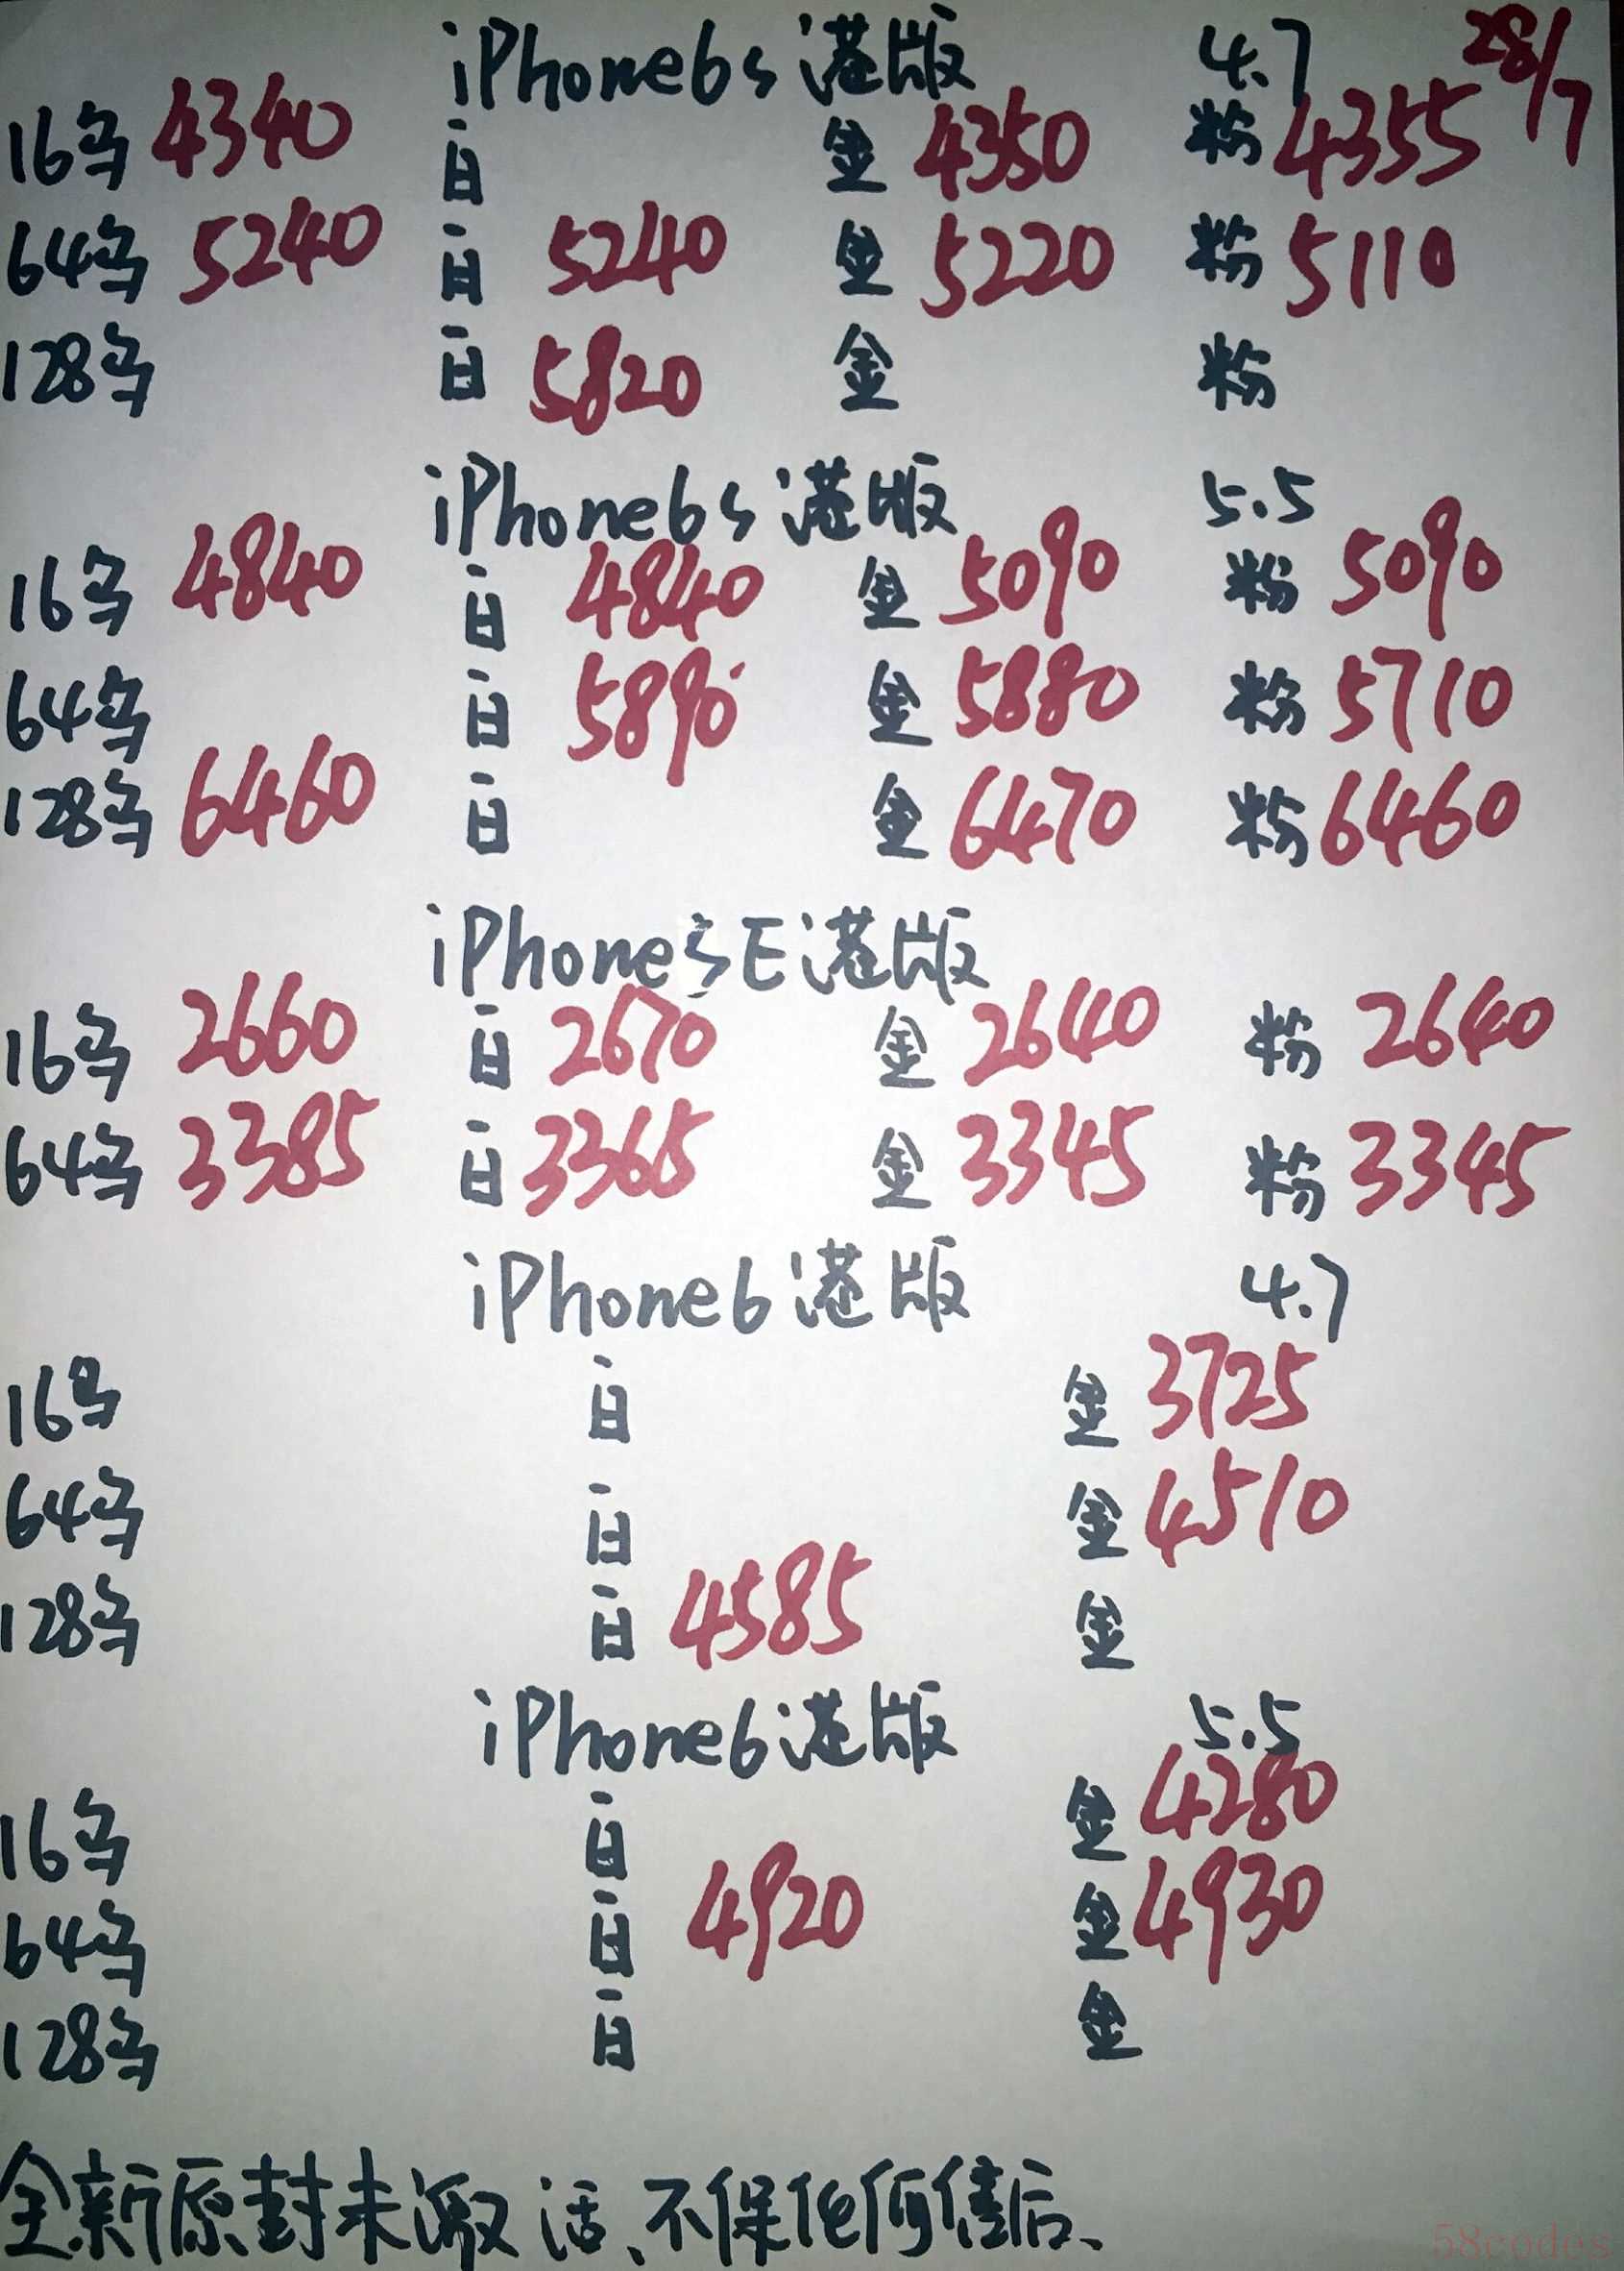 iPhone6s港版 4.7 28/7
16乌 4340 白 金 4350 粉 4355
64乌 5240 白 5240 金 5220 粉 5110
128乌 白 5820 金 粉
iPhone6s港版 5.5
16乌 4840 白 4840 金 5090 粉 5090
64乌 白 5890 金 5880 粉 5710
128乌 6460 白 金 6470 粉 6460
iPhoneSE港版
16乌 2660 白 2670 金 2640 粉 2640
64乌 3385 白 3365 金 3345 粉 3345
iPhone6港版 4.7
16乌 白 金 3725
64乌 白 金 4510
128乌 白 4585 金
iPhone6港版 5.5
16乌 白 金 4280
64乌 白 4920 金 4930
128乌 白 金
全新原封未激活、不保任何售后、
58codes